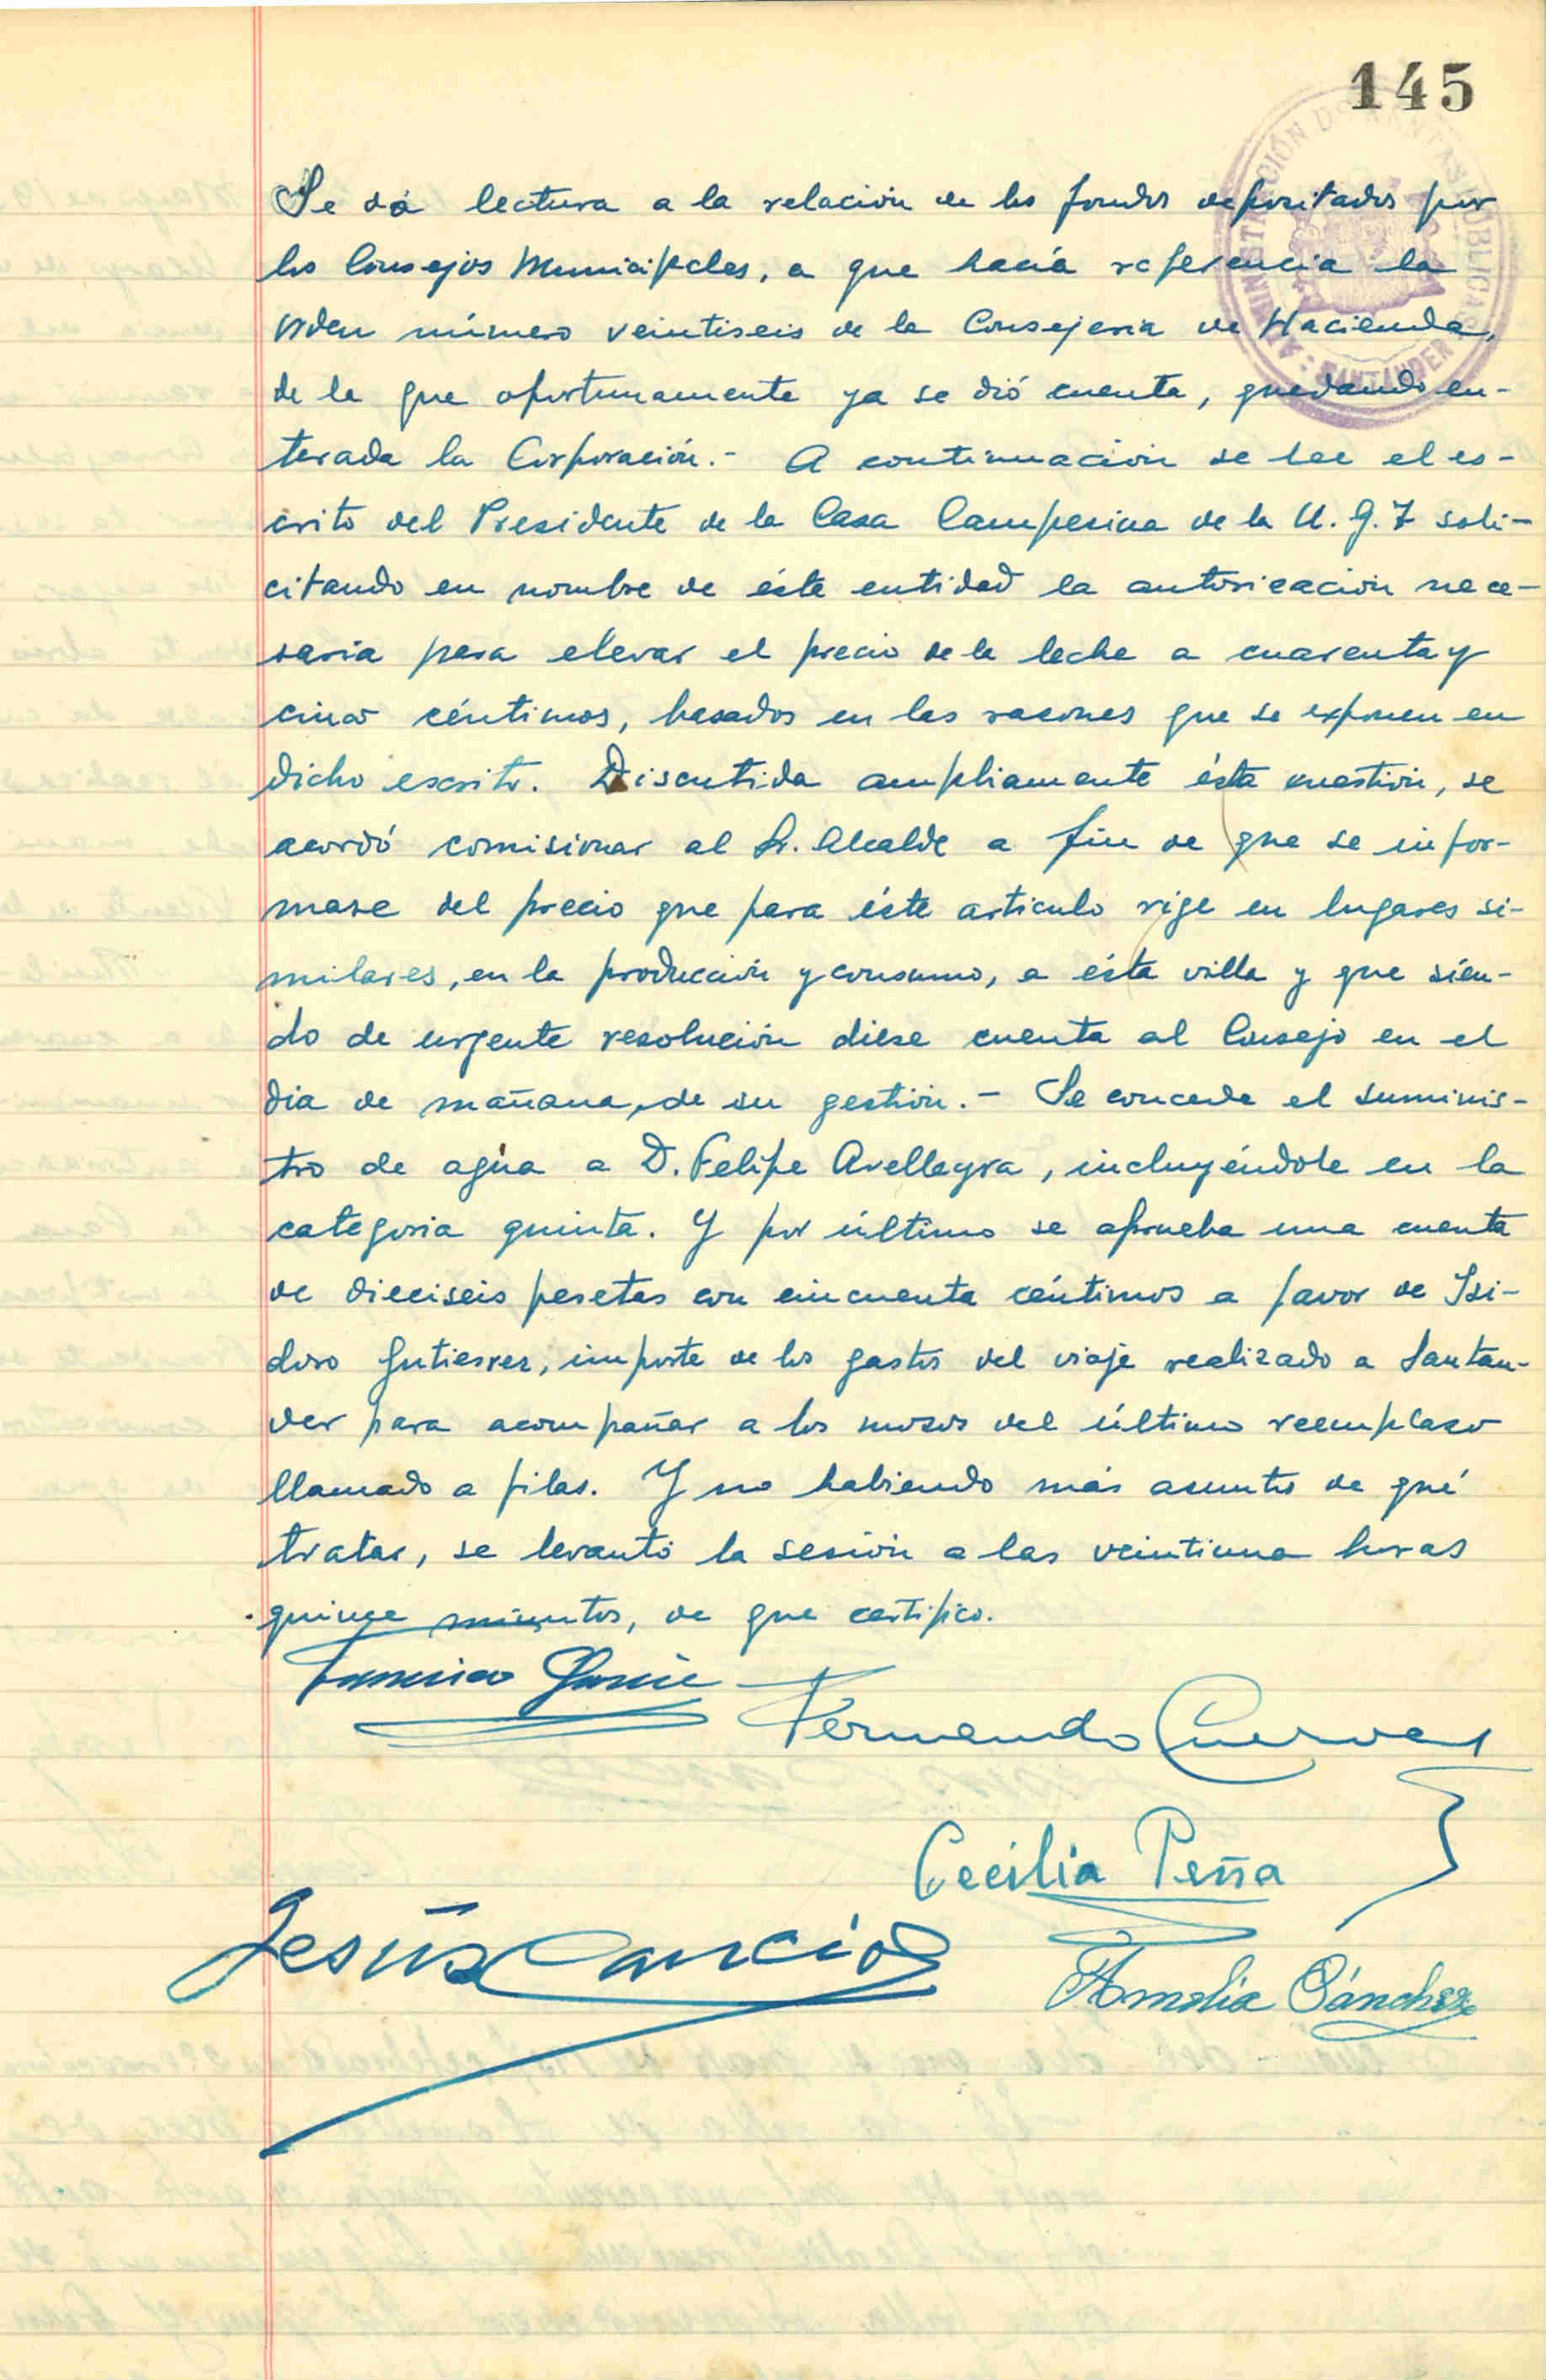 145
ADMINISTRACIÓN DE RENTAS PÚBLICAS
SANTANDER
Se dá lectura a la relación de los fondos depositados por
los Consejos Municipales, a que hacía referencia la
orden número veintiseis de la Consejeria de Hacienda,
de la que oportunamente ya se dió cuenta, quedando en-
terada la Corporación.- A continuación se lee el es-
crito del Presidente de la Casa Campesina de la U.G.T soli-
citando en nombre de ésta entidad la autorización nece-
saria para elevar el precio de la leche a cuarenta y
cinco céntimos, basados en las razones que se exponen en
dicho escrito. Discutida ampliamente ésta cuestión, se
acordó comisionar al Sr. Alcalde a fin de que se infor-
mase del precio que para éste articulo rige en lugares si-
milares, en la producción y consumo, a ésta villa y que sien-
do de urgente resolución diese cuenta al Consejo en el
dia de mañana, de su gestión.- Se concede el suminis-
tro de agua a D. Felipe Avellegra, incluyéndole en la
categoria quinta. Y por último se aprueba una cuenta
de dieciseis pesetas con cincuenta céntimos a favor de Isi-
doro Gutierrez, importe de los gastos del viaje realizado a Santan-
der para acompañar a los mozos del último reemplazo
llamado a filas. Y no habiendo más asuntos de qué
tratar, se levantó la sesión a las veintiuna horas
quince minutos, de que certifico.
Fernando Cuevas
Cecilia Peña
Jesús Cancio
Amelia Sánchez